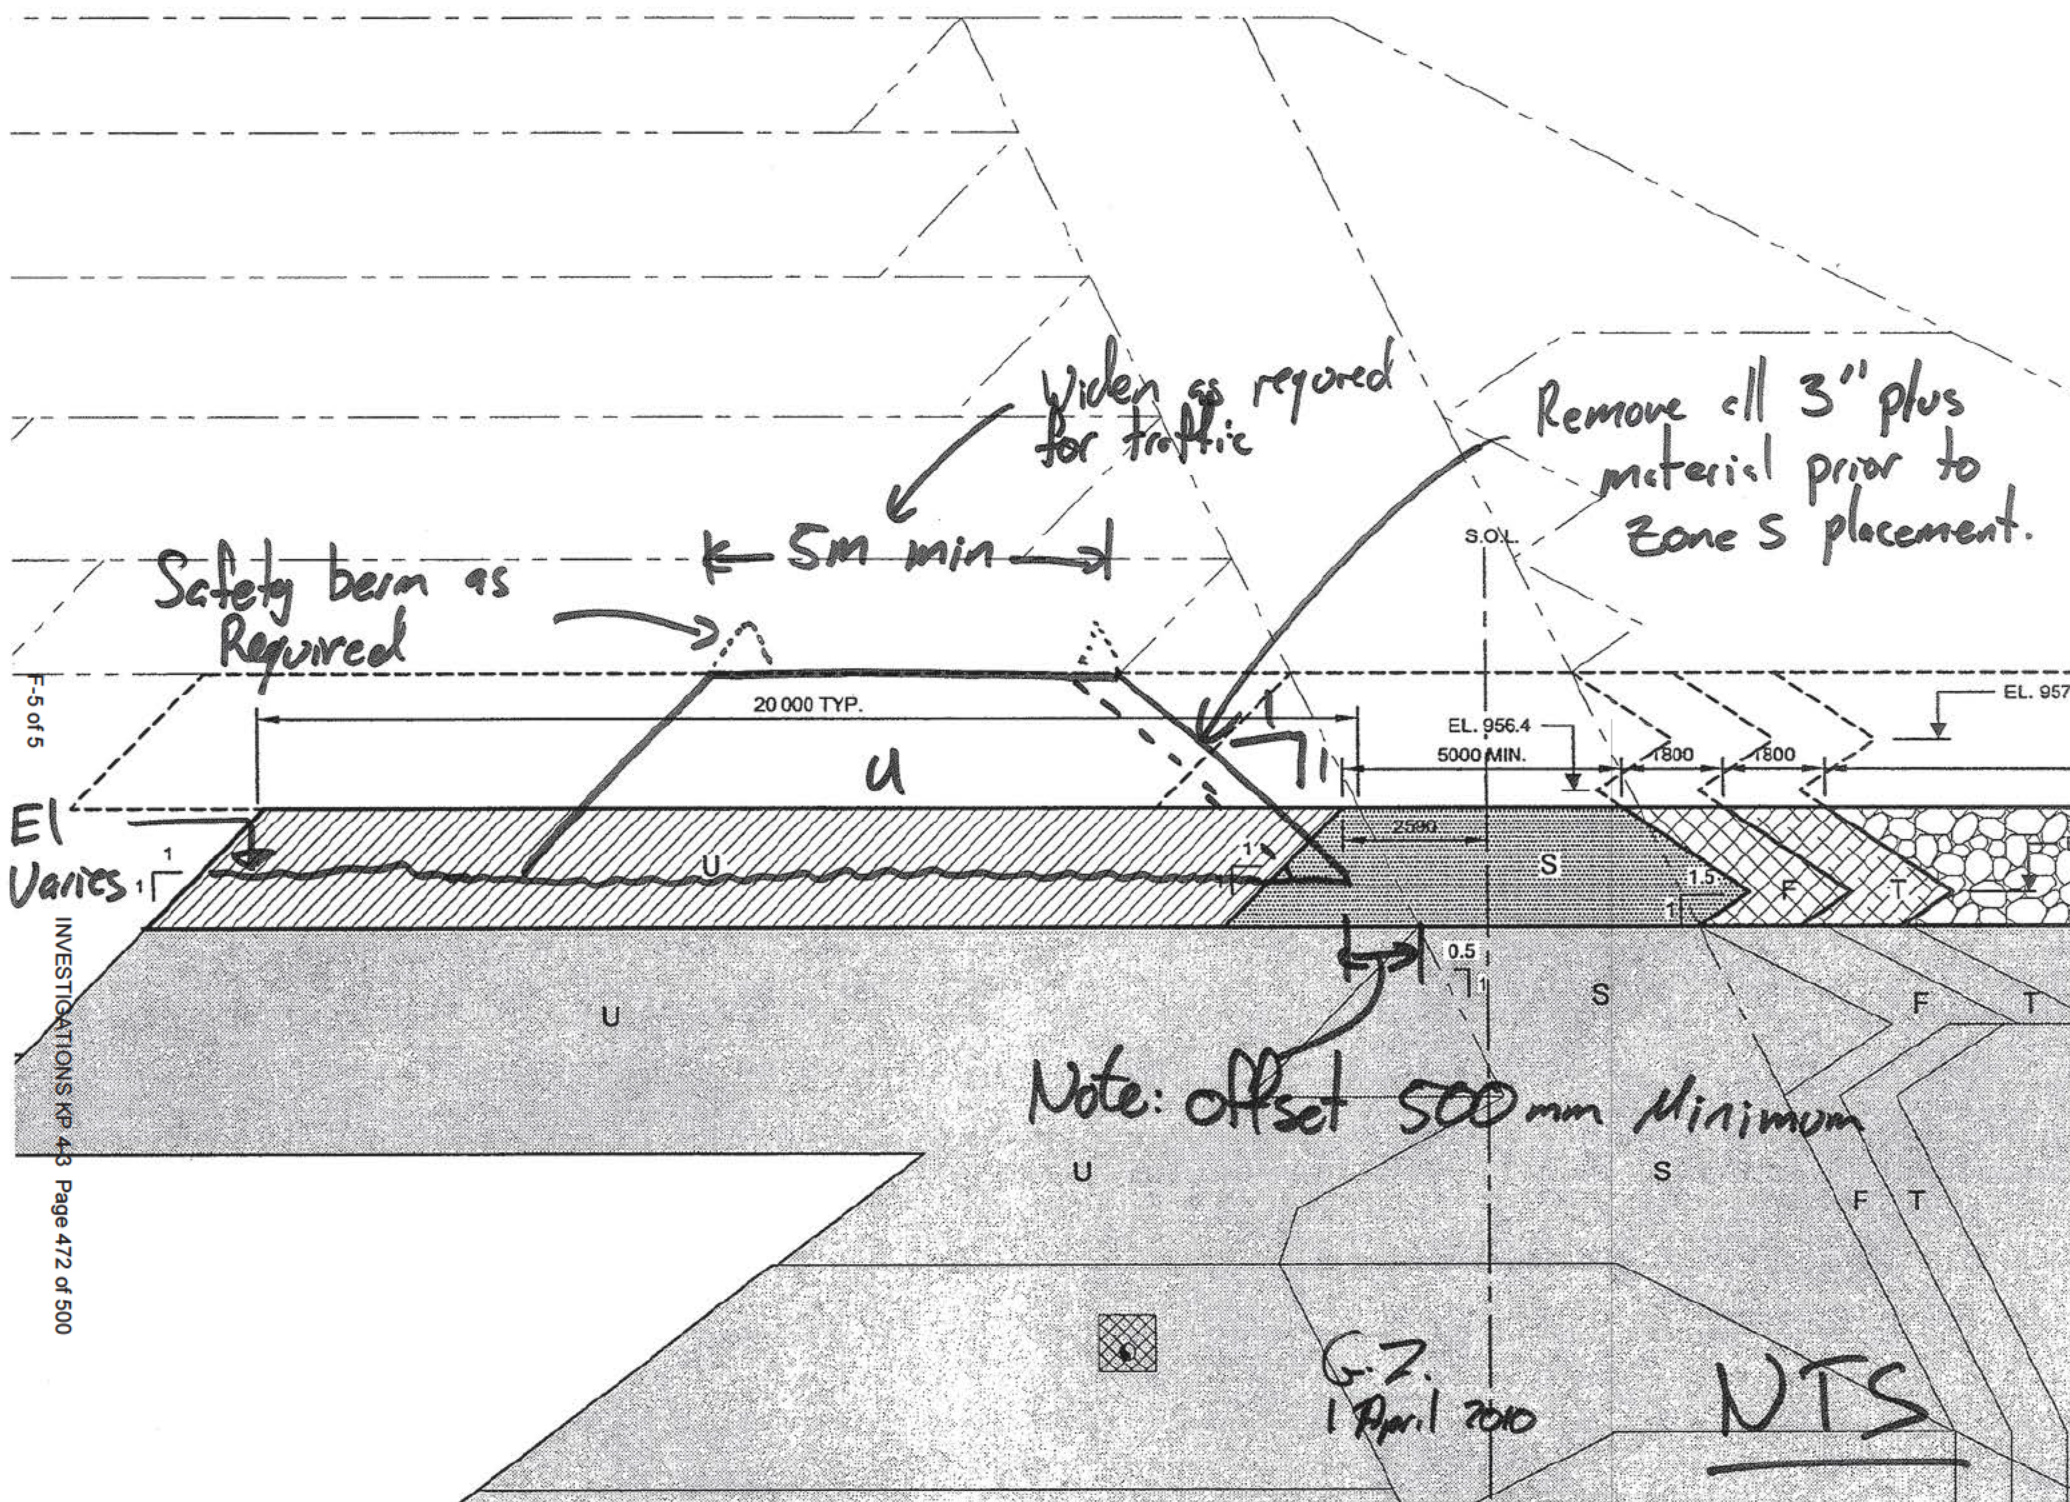 Widen as requred
for traffic
Remove all 3" plus
material prior to
Zone S placement.
5m min
S.O.L.
Safety berm as
Required
F-5 of 5
20 000 TYP.
EL. 957
EL. 956.4
5000 MIN.
1800
1800
1
1
U
El
Varies
1
1
2590
U
1
S
1.5
1
F
T
0.5
1
U
S
F
T
Note: offset 500 mm Minimum
U
S
F
T
INVESTIGATIONS KP 4-3 Page 472 of 500
G.Z.
1 April 2010
NTS